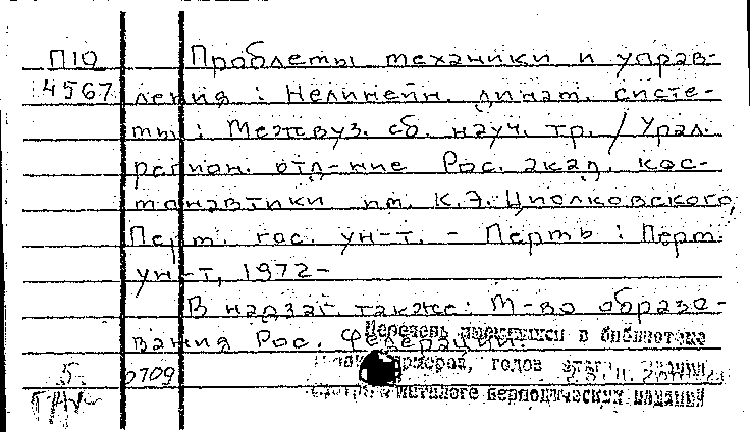 П10 Проблемы механики и управ-
4567 ления : Нелинейн. динам. систе-
мы : Межвуз. сб. науч. тр. / Урал.
регион. отд-ние Рос. акад. кос-
монавтики им. К.Э. Циолковского,
Перм. гос. ун-т. - Пермь : Перм.
ун-т, 1972-
В надзаг. также: М-во образо-
вания Рос. Федерации.
Перечень имеющихся в библиотеке
номеров, годов этого издания
смотри в каталоге периодических изданий
5 0709